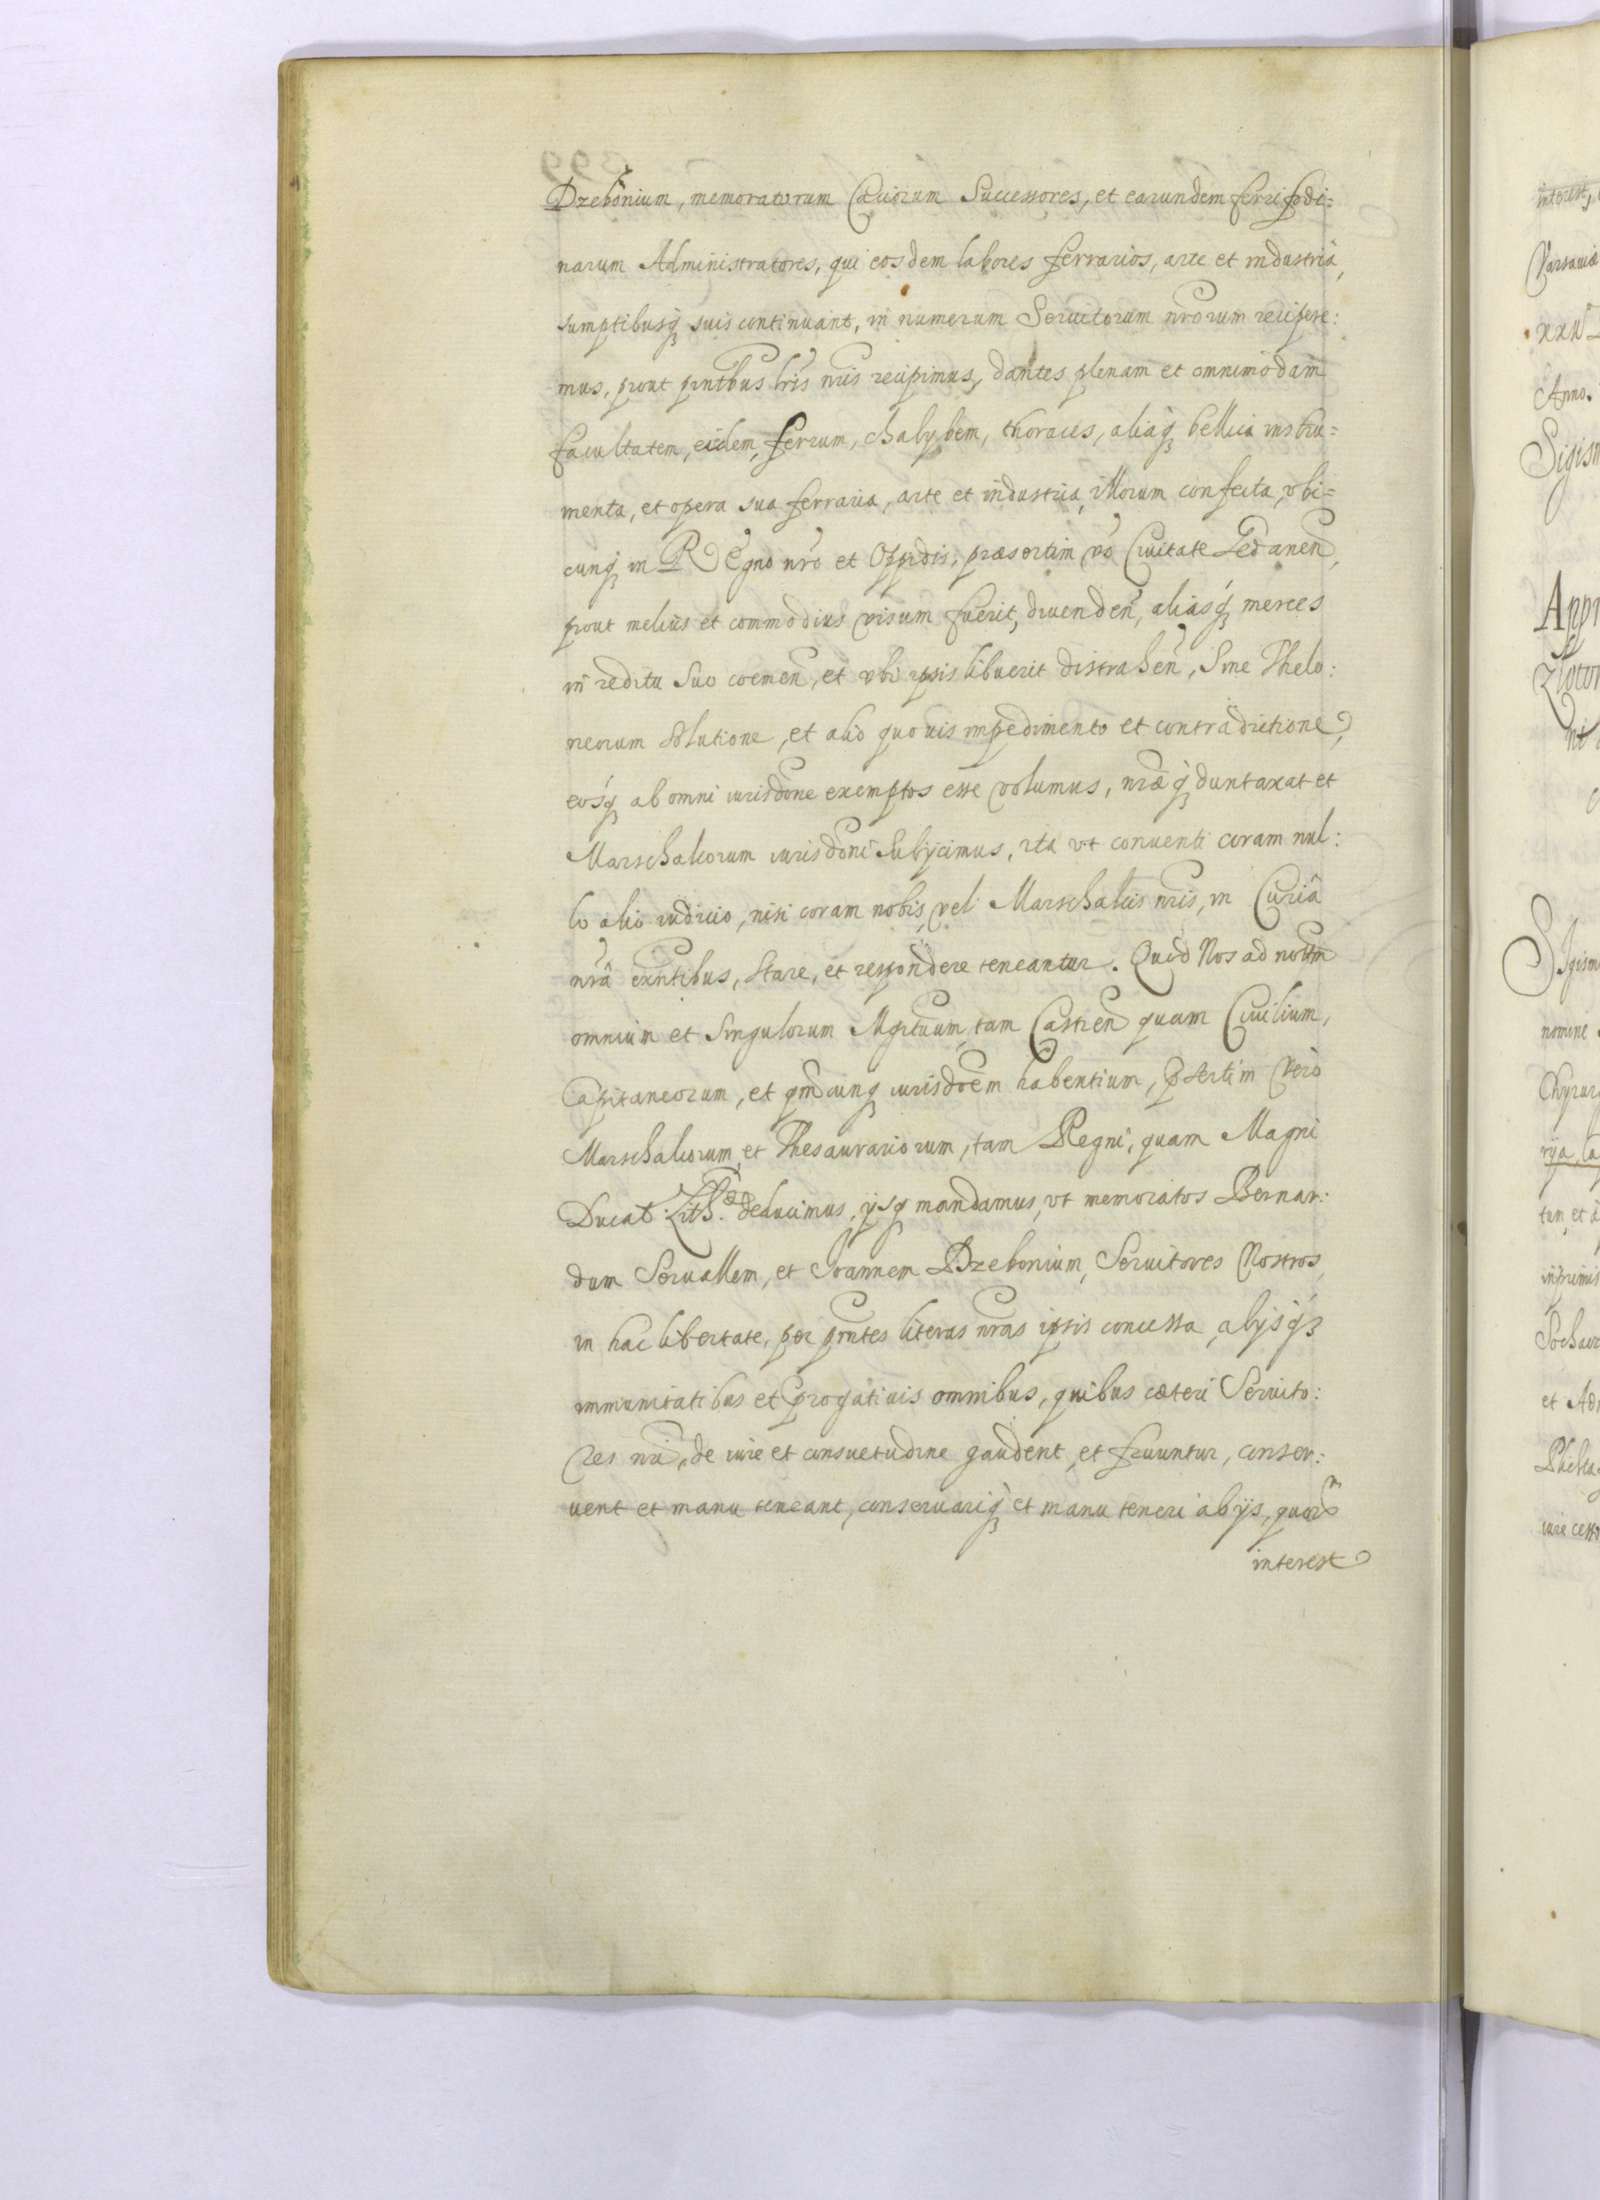 Dzebonium, memoratorum Cacciorum Successores, et earundem ferrifodi=
narum Administratores, qui eosdem labores ferrarios, arte et industriâ,
sumptibusq suis continuant, in numerum Seruitorum nrorum recipere:
mus, prout pntibus lris nris recipimus, dantes plenam et omnimodam
facultatem, eidem, ferrum, chalybem, thoraces, aliaq bellica instru=
menta, et opera sua ferraria, arte et industria, illorum confecta, vbi=
cunq in REgno nro et Oppidis, præsertim vo Ciuitate Gedanen,
prout melius et commodius visum fuerit, diuenden, aliasq merces
in reditu suo coemen, et vbi ipsis libuerit distrahen, Sine Thelo:
neorum solutione, et alio quouis impedimento et contradictione,
eosq ab omni iurisdone exemptos esse volumus, nræq duntaxat et
Marschalcorum iurisdoni subijcimus, ita vt conuenti coram nul:
lo alio iudicio, nisi coram nobis, vel Marschalcis nris, in Curiâ
nrâ exntibus, Stare, et respondere teneantur. Quod Nos ad nottm
omnium et Singulorum Mgrtuum, tam Castren quam Ciuilium,
Capitaneorum, et qmcunq iurisdoem habentium, psertim vero
Marschalcorum, et Thesaurariorum, tam Regni, quam Magni
Ducat: Lith. deducimus, ijsq mandamus, vt memoratos Bernar:
dum Seruallem, et Joannem Dzebonium, Seruitores Nostros,
in hac libertate, per pntes literas nras ipsis concessa, alijsq
immunitatibus et progatiuis omnibus, quibus cæteri Seruito:
res nri, de iure et consuetudine gaudent, et fruuntur, conser:
uent et manu teneant, conseruariq et manu teneri ab ijs, quorm
interest